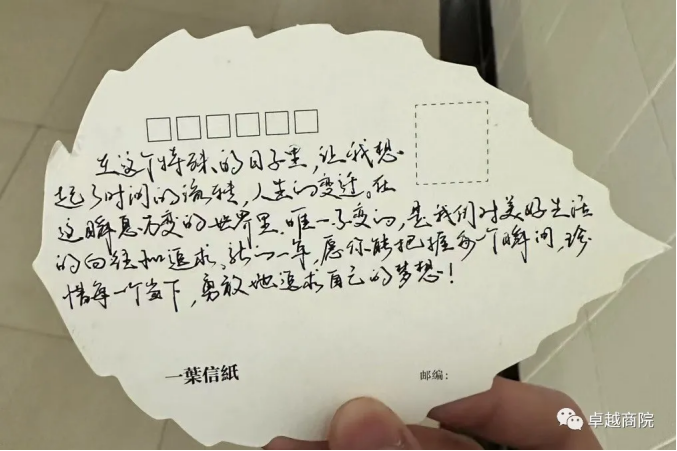 在这个特殊的日子里，让我想
起了时间的流转，人生的变迁。在
这瞬息万变的世界里，唯一不变的，是我们对美好生活
的向往和追求。新的一年，愿你能把握每个瞬间，珍
惜每一个当下，勇敢地追求自己的梦想！
一葉信紙
邮编：
卓越商院